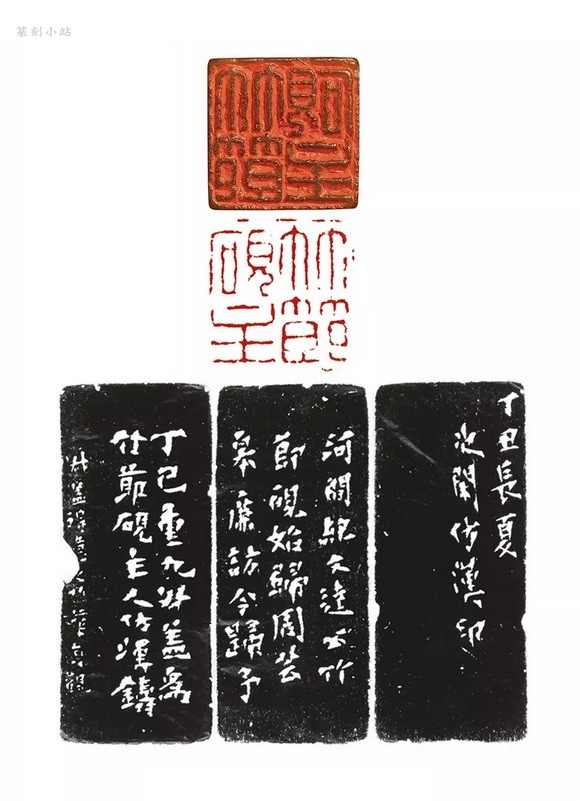 篆刻小站
竹節
硯主
丁丑長夏
次閑仿漢印
河間紀文達公竹
節硯始歸周芸
皋廉訪今歸予
丁巳重九叔蓋爲
竹節硯主人仿漢鑄